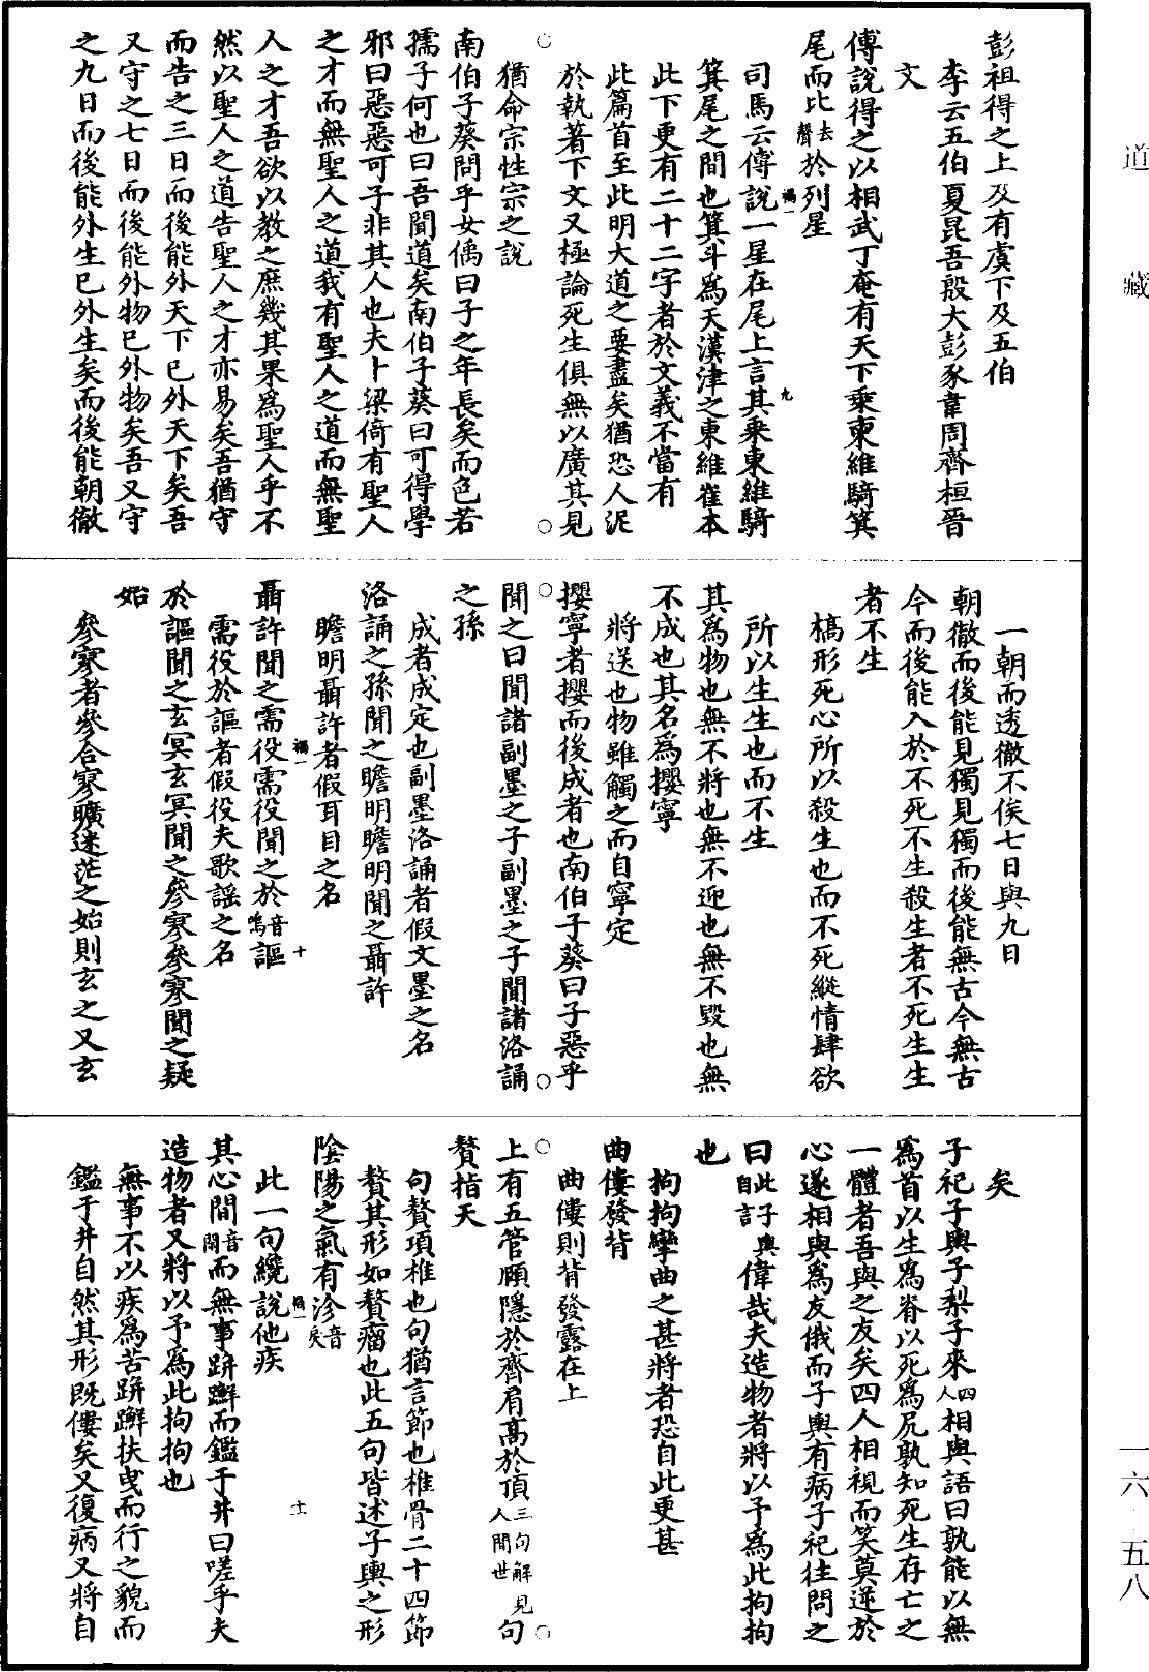 彭祖得之上及有虞下及五伯
李云五伯夏昆吾殷大彭豕韋周齊桓晉
文
傅說得之以相武丁奄有天下乘東維騎箕
尾而比去聲於列星
司馬云傅說一星在尾上言其乘東維騎
箕尾之間也箕斗為天漢津之東維崔本
此下更有二十二字者於文義不當有
此篇首至此明大道之要盡矣猶恐人泥
於執著下文又極論死生俱無以廣其見
猶命宗性宗之說
南伯子葵問乎女偊曰子之年長矣而色若
孺子何也曰吾聞道矣南伯子葵曰可得學
邪曰惡惡可子非其人也夫卜梁倚有聖人
之才而無聖人之道我有聖人之道而無聖
人之才吾欲以教之庶幾其果為聖人乎不
然以聖人之道告聖人之才亦易矣吾猶守
而告之三日而後能外天下已外天下矣吾
又守之七日而後能外物已外物矣吾又守
之九日而後能外生已外生矣而後能朝徹
一朝而透徹不俟七日與九日
朝徹而後能見獨見獨而後能無古今無古
今而後能入於不死不生殺生者不死生生
者不生
槁形死心所以殺生也而不死縱情肆欲
所以生生也而不生
其為物也無不將也無不迎也無不毀也無
不成也其名為攖寧
將送也物雖觸之而自寧定
攖寧者攖而後成者也南伯子葵曰子惡乎
聞之曰聞諸副墨之子副墨之子聞諸洛誦
之孫
成者成定也副墨洛誦者假文墨之名
洛誦之孫聞之瞻明瞻明聞之聶許
瞻明聶許者假耳目之名
聶許聞之需役需役聞之於音嗚謳
需役於謳者假役夫歌謠之名
於謳聞之玄冥玄冥聞之參寥參寥聞之疑
始
參寥者參合寥曠迷茫之始則玄之又玄
矣
子祀子輿子犁子來四人相與語曰孰能以無
為首以生為脊以死為尻孰知死生存亡之
一體者吾與之友矣四人相視而笑莫逆於
心遂相與為友俄而子輿有病子祀往問之
曰此子輿自言偉哉夫造物者將以予為此拘拘
也
拘拘攣曲之甚將者恐自此更甚
曲僂發背
曲僂則背發露在上
上有五管頤隱於齊肩高於頂三句解見人間世句
贅指天
句贅項椎也句猶言節也椎骨二十四節
贅其形如贅瘤也此五句皆述子輿之形
陰陽之氣有沴音戾
此一句纔說他疾
其心間音閑而無事跰𨇤而鑑于井曰嗟乎夫
造物者又將以予為此拘拘也
無事不以疾為苦跰𨇤扶曳而行之貌而
鑑于井自然其形既僂矣又復病又將自
道藏
一六 五八
福一
九
福一
十
福一
十一